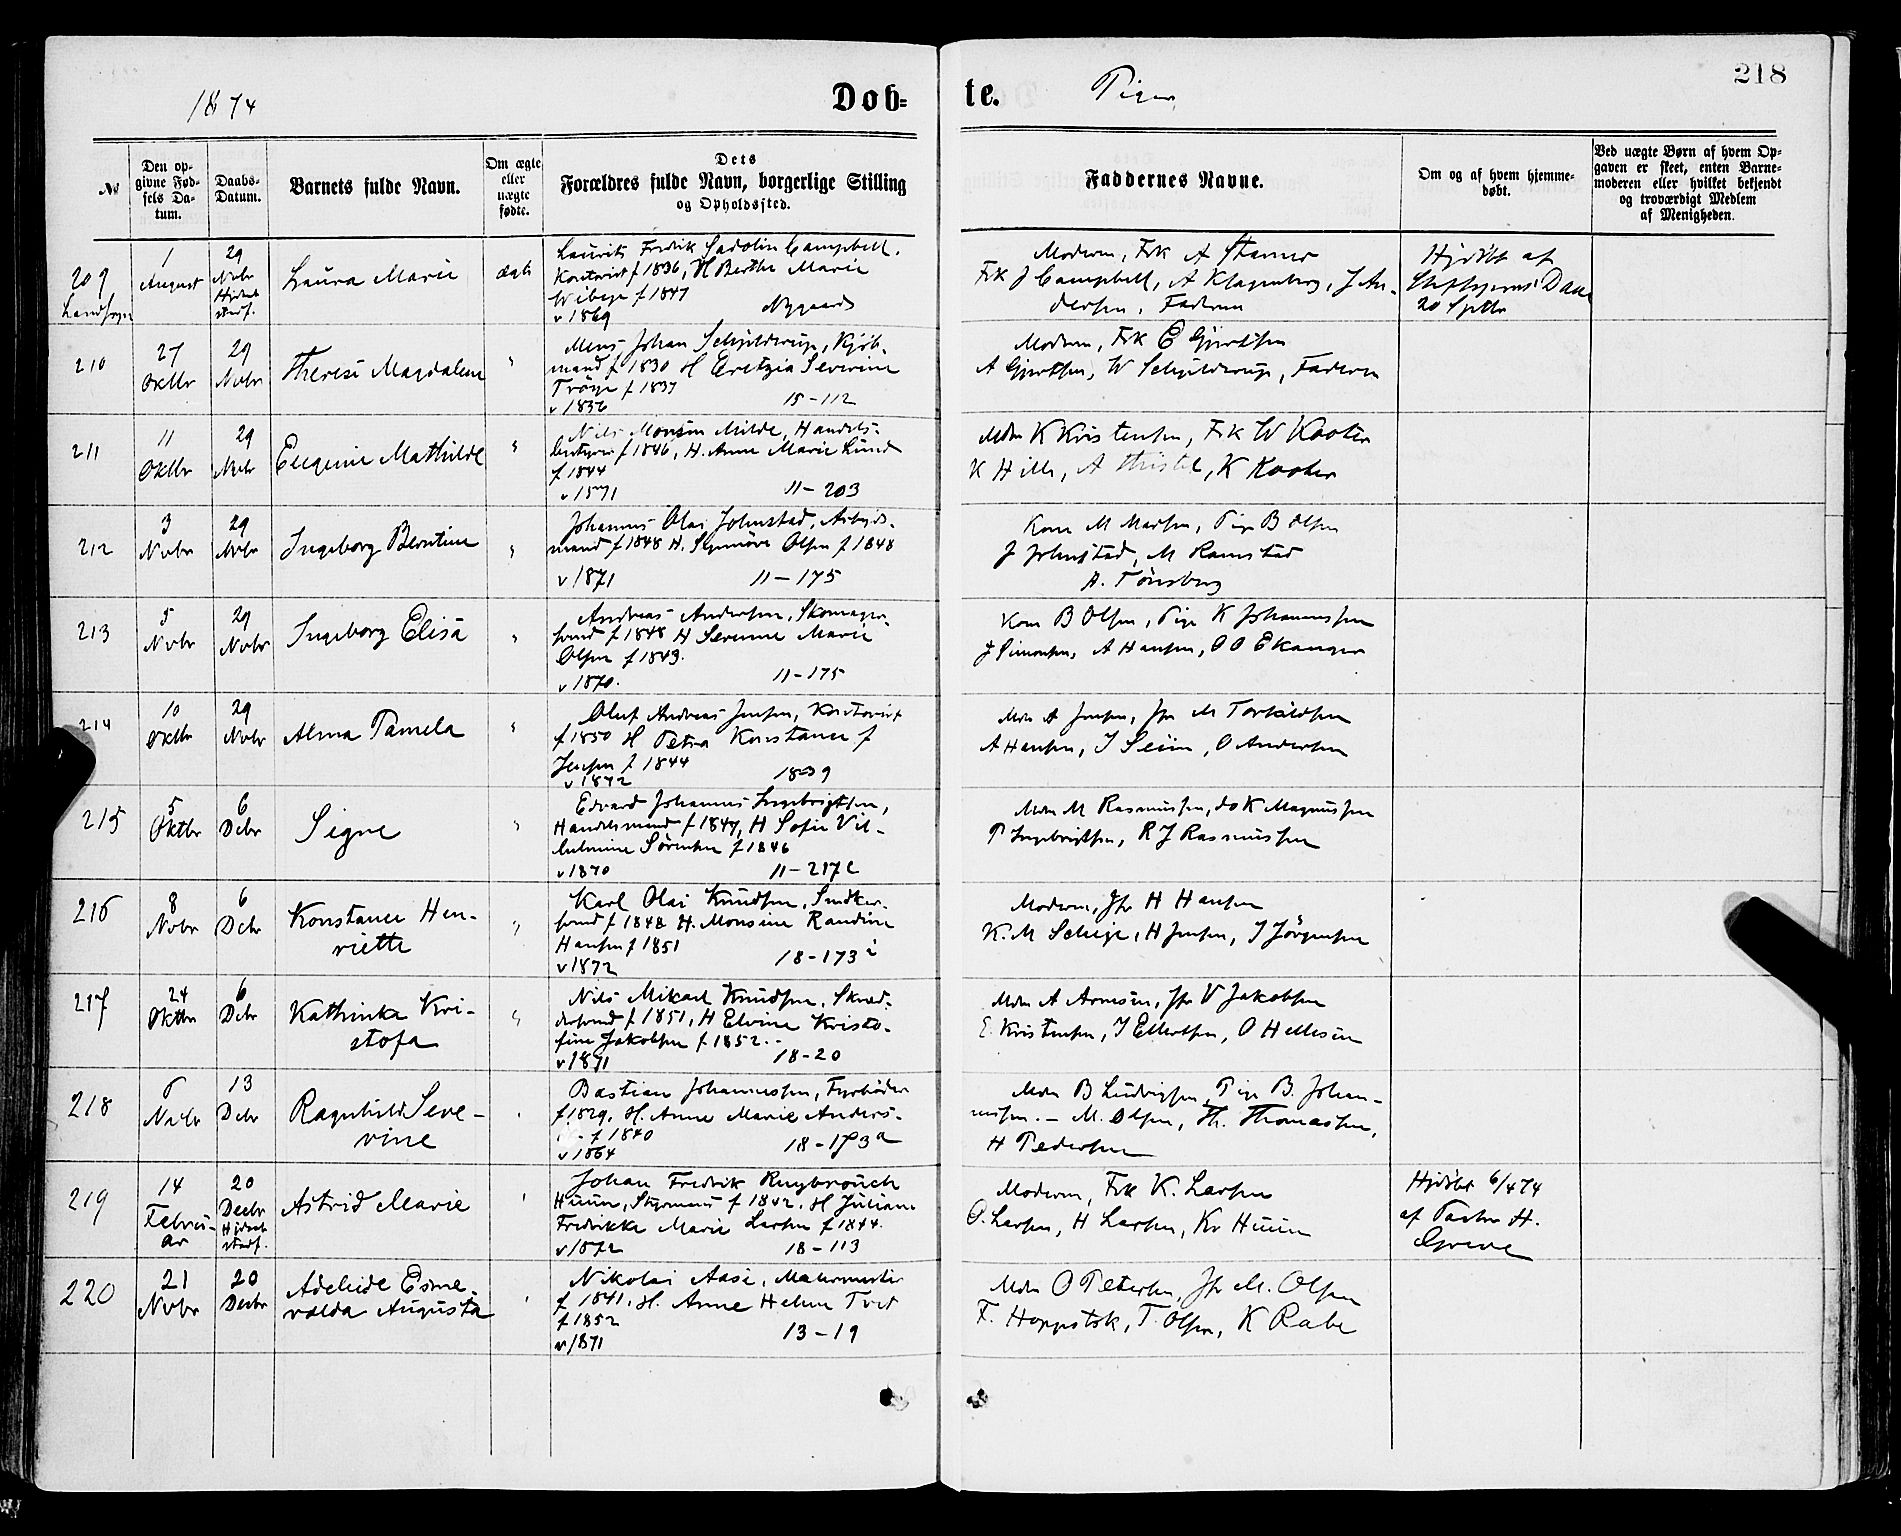 1874
Døb-
te.
Piger
218
№
Den op-
givne Fød-
sels Da-
tum.
Daabs-
Datum.
Barnets fulde Navn.
Om ægte
eller
uægte
fødte.
Dets
Forældres fulde Navn, borgerlige Stilling
og Opholdssted.
Faddernes Navne.
Om og af hvem hjemme-
døbt.
Ved uægte Børn af hvem Op-
gaven er skeet, enten Barne-
moderen eller hvilket bekjendt
og troværdigt Medlem
af Menigheden.
209
1
August
29
Novbr
Laura Marie
ægte
Laurits Fredrik Sadolin Campbell,
Kontorist f 1836, H Berthe Marie
Wibye f 1847
v 1869
Nygaard
Modern, Frk A
Frk J Campbell, A Klagenberg, J An-
dersen, Faderen
Hjdøbt af
20 Septbr
210
27
Oktbr
29
Novbr
Therese Magdalene
"
Mens Johan Schjelderup, Kjøb-
mand f 1830 H Eretzia Severine
f 1837
v 1836
15-112
Modern, Frk E Gjertsen
A Gjertsen, W Schjelderup, Faderen
211
11
Oktbr
29
Novbr
Eugenie Mathilde
"
Nils Monsen Milde, Handels-
betjent f 1846, H. Anne Marie Lund
f 1844
v 1871
11-203
Mdm K Kristensen, Frk W Kooter
K Hille, A Thistel, K Kooter
212
3
Novbr
29
Novbr
Ingeborg Berntine
"
Johannes Olai Johnstad, Arbejds-
mand f 1848 H. Synnöve Olsen f 1848
v 1871
11-175
Kone M Madsen, Pige B Olsen
J Johnstad, M Ramstad
A. Tönsberg
213
5
Novbr
29
Novbr
Ingeborg Elisa
"
Andreas Andersen, Skomager-
svend f 1848 H Serenne Marie
Olsen f 1843.
v 1870.
11-175
Kone B Olsen, Pige K Johannessen
J Simonsen, A Hansen, O O Ekanger
214
10
Oktbr
29
Novbr
Alma Pamela
"
Oluf Andreas Jensen, Kontorist
f 1850 H Petra Konstance f
Jensen f 1844
v 1872
18-39
Mdm A Jensen, Jfr M Torkildsen
A Hansen, J Seim, O Andersen
215
5
Oktbr
6
Debr
Signe
"
Edvard Johannes Ingebrigtsen,
Handelsmand f 1847, H Sofie Vil-
helmine Sörensen f 1846
v 1870
11-217c
Mdm M Rasmussen, do K Magnussen
P Ingebrigtsen, R J Rasmussen
216
8
Novbr
6
Debr
Konstance Hen-
riette
"
Karl Olai Knudsen, Snedker-
svend f 1848 H. Monsine Randine
Hansen f 1851
v 1872
18-173 i
Modern, Jfr H Hansen
K. M Schige, H Jensen, J Jörgensen
217
24
Oktbr
6
Debr
Kathinka Kri-
stofa
"
Nils Mikael Knudsen, Skræd-
dersvend f 1851, H Elvine Kristo-
fine Jakobsen f 1852.
v 1871
18-20
Mdm A Arnesen, Jfr V Jakobsen
E. Kristensen, J Ellertsen, O Hellesen
218
6
Novbr
13
Debr
Ragnhild Seve-
rine
"
Bastian Johannessen, Fyrböder
f 1829. H. Anne Marie Anders-
f 1840
v 1864
18-173a
Mdm B Ludvigsen, Pige B. Johan-
nesen. - M. Olsen, Th. Thomassen,
H Pedersen
219
14
Febru-
ar
20
Decbr
Astrid Marie
"
Johan Fredrik Ruybrouck
Huun, Styrmand f 1842. H Juliane
Fredrikke Marie Larsen f 1844.
v 1872
18-113
Modern, Frk K. Larsen
O. Larsen, H Larsen, Kr Huun
Hjdöbt 6/4 74
af Pastor H.
Greve
220
21
Novbr
20
Decbr
Adeleide Esme-
ralda Augusta
"
Nikolai Aase, Malermester
f 1841. H. Anne Helene Tvet
f 1852
v 1871
13-19
Mdm O Petersen, Jfr M. Olsen
F. Hoppstok, T. Olsen, K Rabe